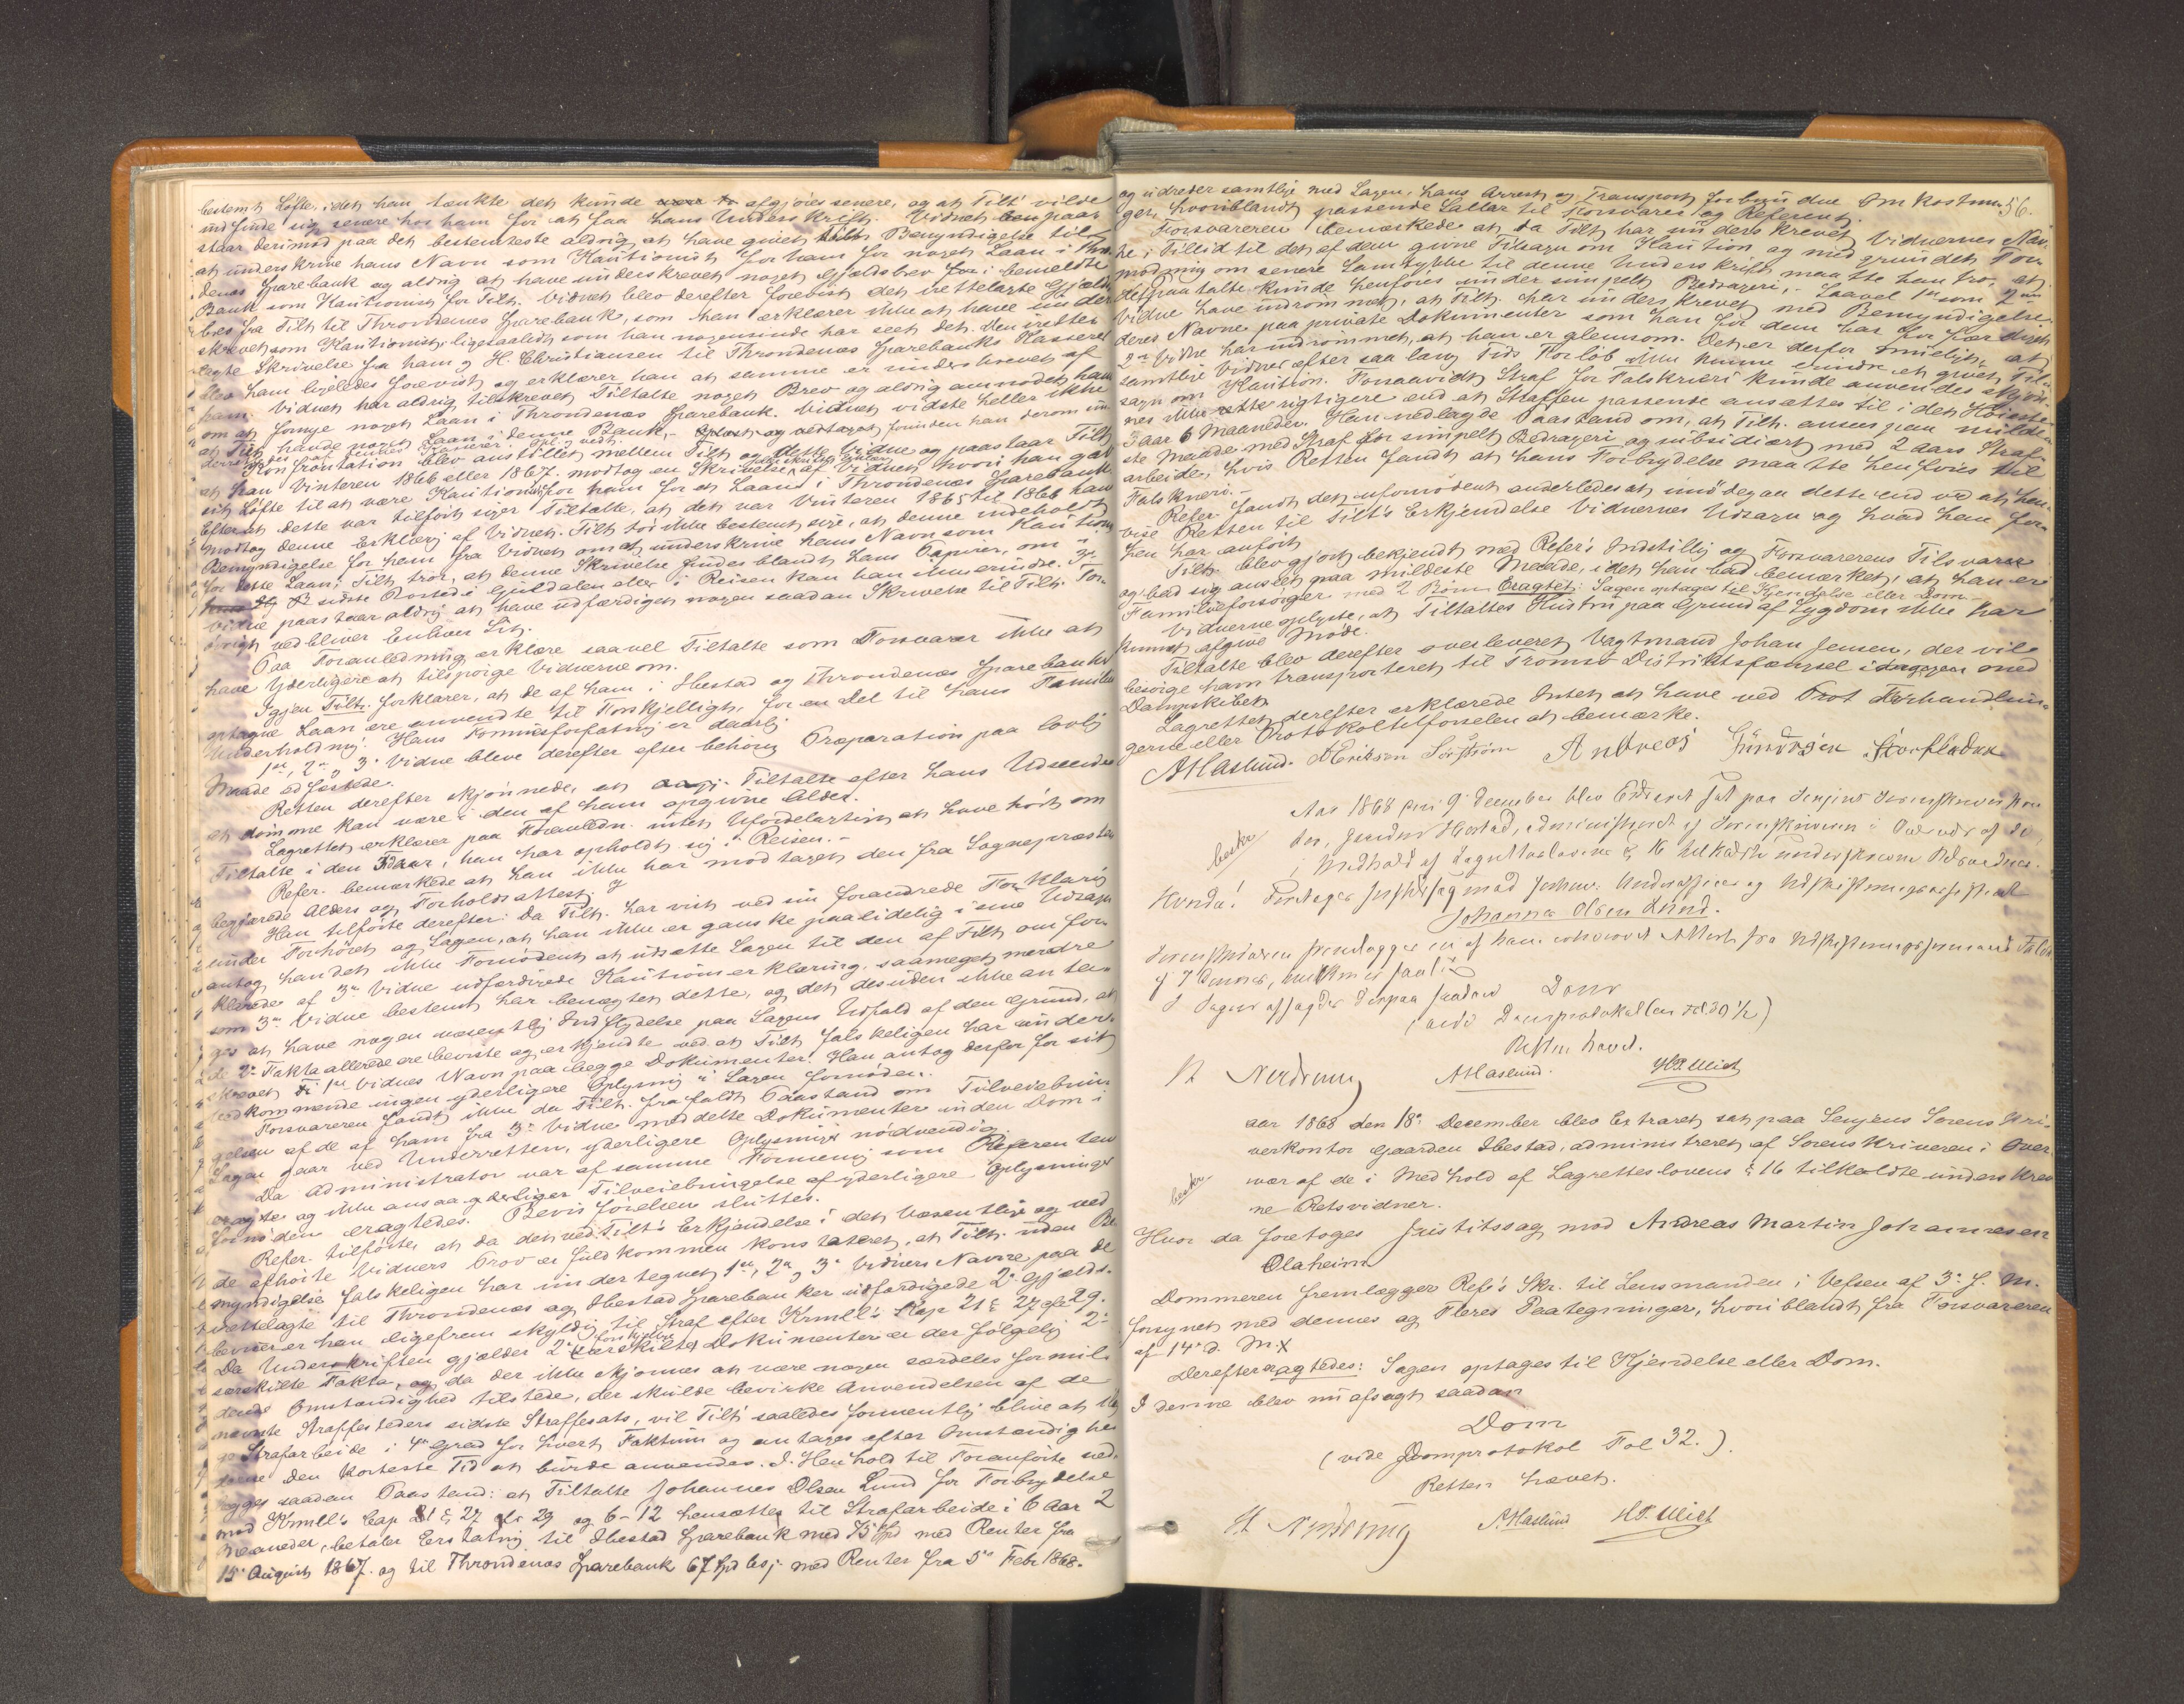 bestemt Løfte, idet han tænkte det kunde afgjøres senere, og at Tilt. vilde
indfinde sig senere hos ham for at faa hans Underskrift. Vidnet benpaa-
staar derimod paa det bestemteste aldrig at have givet Tilt. Bemyndigelse til
at underskrive hans Navn som Kautionist for ham for noget Laan i Thron-
denæs Sparebank og aldrig at have underskrevet noget Gjældsbrev for i bemeldte
Bank som Kautionist for Tilt. Vidnet blev derefter forevist det irettelagte Gjælds-
brev fra Tilt. til Throndenæs Sparebank, som han erklærer ikke at have under
skrevet som Kautionist, ligesaalidt som han nogensinde har seet det. Den irette-
lagte Skrivelse fra ham og H. Christiansen til Throndenæs Sparebanks Kasserer
blev ham ligeledes forevist og erklærer han at samme er underskrevet af
ham. Vidnet har aldrig tilskrevet Tiltalte noget Brev og aldrig anmodet ham
om at fornye noget Laan i Throndenæs Sparebank. Vidnet vidste heller ikke
at Tilt. havde noget Laan i denne Bank, forinden han derom un-
derrettedes af dennes Kasserer. Opl. og vedt.
Konfrontation blev anstillet mellem Tilt. og dette Vidne og paastaar Tilt.
at han Vinteren 1866 eller 1867 modtog en Skrivelse af Vidnet hvori han gav
sit Løfte til at være Kautionist for ham for et Laan i Throndenæs Sparebank.
Efterat dette var tilført siger Tiltalte, at det var Vinteren 1865 til 1866 han
modtog denne Erklæring af Vidnet. Tilt. tør ikke bestemt sige, at denne indeholdt
Bemyndigelse for ham fra Vidnet om at underskrive hans Navn som Kaution
for dette Laan; Tilt. tror, at denne Skrivelse findes blandt hans Papirer, om i
sidste Bosted i Guldalen eller i Reisen kan han ikke erindre. 3die
Vidne paastaar aldrig at have udfærdiget nogen saadan Skrivelse til Tilt. For-
øvrigt vedbliver Enhver Sit.
Paa Foranledning erklære saavel Tiltalte som Forsvarer ikke at
have Yderligere at tilspørge Vidnerne om.
Igjen Tilt. forklarer, at de af ham i Ibestad og Throndenæs Sparebanker
optagne Laan ere anvendte til Forskjelligt, for en Del til hans Families
Underholdning. Hans Formuesforfatning er daarlig
1ste, 2det og 3die Vidne bleve derefter efter behørig Præparation paa lovlig
Maade edfæstede.
Retten derefter skjønnede, at Tiltalte efter hans Udseende
at dømme kan være i den af ham opgivne Alder.
Lagrettet erklærer paa Foranledn. intet Ufordelagtigt at have hørt om
Tiltalte i den Tid han har opholdt sig i Reisen.-
Refer. bemærkede at han ikke har modtaget den fra Sognepræsten
begjærede Alders og Forholdsattest.
Han tilførte derefter: Da Tilt. har vist ved sin forandrede Forklaring
under Forhøret og Sagen, at han ikke er ganske paalidelig i sine Udsagn
antog han det ikke Fornødent at udsætte Sagen til den af Tilt. om for-
klarede af 3die Vidne udfærdigede Kautionserklæring, saameget mindre
som 3die Vidne bestemt har benægtet dette, og det desuden ikke anta-
ges at have nogen væsentlig Indflydelse paa Sagens Udfald af den Grund, at
de 2de Fakta allerede ere beviste og erkjendte ved at Tilt. falskeligen har under-
skrevet 1ste Vidnes Navn paa begge Dokumenter. Han antog derfor for sit
Vedkommende ingen yderligere Oplysning i Sagen fornøden.
Forsvareren fandt ikke da Tilt. frafaldt Paastand om Tilveiebrin-
gelsen af de af ham fra 3die Vidne meddelte Dokumenter inden Dom i
Sagen gaar ved Underretten, yderligere Oplysninger nødvendig.
Da Administrator var af samme Formening som Referenten
og ikke ansaa yderligere Tilveiebringelse af yderligere Oplysninger
fornøden eragtedes. Bevisførelsen sluttet.
Refer. tilførte, at da det ved Tilt's Erkjendelse i det Væsentlige og ved
de afhørte Vidners Prov er fuldkommen konstateret, at Tilt. uden Be-
myndigelse falskeligen har undertegnet 1ste, 2det og 3die Vidners Navne paa de
irettelagte til Throndenæs og Ibestad Sparebanker udfærdigede 2de Gjælds-
breve er han ligefrem skyldig til Straf efter Krmll's Kap 21 § 27 cfr 29.
Da Underskriften gjælder 2 forskjellige Dokumenter er der følgelig 2de
særskilte Fakta, og da der ikke skjønnes at være nogen særdeles formil-
dende Omstændighed tilstede, der skulde bevirke Anvendelsen af de
nævnte Straffesteders sidste Straffesats, vil Tilt. saaledes formentlig blive at ilæg-
ge Strafarbeide i 4de Grad for hvert Faktum og antages efter Omstændighe-
derne den korteste Tid at burde anvendes. I Henhold til Foranførte ned-
lægges saadan Paastand: at Tiltalte Johannes Olsen Lund for Forbrydelse
mod Krmll's Cap 21 § 27 cfr 29 og 6-12 hensættes til Strafarbeide i 6 Aar 2
Maaneder, betaler Erstatning til Ibestad Sparebank med 75 Spd med Renter fra
15de August 1867 og til Throndenæs Sparebank 67 Spd med Renter fra 5te Febr 1868.
56.
og udreder samtlige med Sagen, hans Arrest og Transport forbundne Omkostnin-
ger, hvoriblandt passende Sallær til Forsvarer og Referent.
Forsvareren bemærkede at da Tilt. har underskrevet Vidnernes Nav-
ne i Tillid til det af dem givne Tilsagn om Kaution og med grundet For-
modning om senere Samtykke til denne Underskrift maatte han tro, at
det paatalte kunde henføres under simpelt Bedrageri,- Saavel 1ste som 2det
Vidne have indrømmet, at Tilt. har underskrevet med Bemyndigelse
deres Navne paa private Dokumenter som han for dem har forfærdiget
2det Vidne har indrømmet, at han er glemsom. Det er derfor muligt, at
samtlige Vidner efter saa lang Tids Forløb ikke kunne erindre et givet Til-
sagn om Kaution. Forsaavidt Straf for Falskneri kunde anvendes skjøn-
nes ikke rettere rigtigere end at Straffen passende ansættes til i det Høieste
2 aar 6 Maaneder. Han nedlagde Paastand om, at Tilt. ansees paa mildes-
te Maade med Straf for simpelt Bedrageri og subsidiært med 2 aars Straf-
arbeide, hvis Retten fandt at hans Forbrydelse maatte henføres til
Falskneri.-
Refer. fandt det ufornødent anderledes at imødegaa dette end ved at hen-
vise Retten til Tilt's Erkjendelse Vidnernes Udsagn og hvad han for-
hen har anført
Tilt. blev gjort bekjendt med Refer's Indstillig og Forsvarerens Tilsvar
og bad sig anseet paa mildeste Maade, idet han bad bemærket, at han er
Familieforsørger med 2 Børn Eragtet: Sagen optages til Kjendelse eller Dom.-
Vidnerne oplyste, at Tiltaltes Hustru paa Grund af Sygdom ikke har
kunnet afgive Møde.
Tiltalte blev derefter overleveret Vagtmand Johan Jensen, der vil
besørge ham transporteret til Tromsø Distriktsfængsel med
Dampskibet
Lagrettet derefter erklærede Intet at have ved Prot Forhandlin-
gerne eller Protokoltilførselen at bemærke.
A Haslund. A Erikson Sörström Andreas Gundersen Storfladen
Aar 1868 den 9 December blev Extraret sat paa Senjens Sorenskriver kon
tor, Gaarden Ibestad, administreret af Sorenskriveren i Overvær af de
beskr
i Medhold af Lagrettesloven § 16 tilkaldte underskrevne Retsvidner.
Hvorda! Foretoges Justitssag mod
Johannes Olsen Lund.
Sorenskriveren fremlægger en af ham Attest fra
I Sagen afsagdes derpaa saadan Dom
(vide Domprotokollen Fol 30 1/2)
Retten hævet.
St Nerdrum A Haslund. H P. Wiest
aar 1868 den 18de December blev Extraret sat paa Senjens Sorenskri-
verkontor Gaarden Ibestad, administreret af Sorenskriveren i Over
beskr
vær af de i Medhold af Lagretteslovens § 16 tilkaldte underskrev
ne Retsvidner.
Hvor da foretoges Justitssag mod Andreas Martin Johannesen
Olaheim
Dommeren fremlægger Ref's Skr. til Lensmanden i Vefsen af 3de f. M.
forsynet med dennes og Fleres Paategninger, hvoriblandt fra Forsvareren
af 14de d. M.
Derefter eragtedes: Sagen optages til Kjendelse eller Dom.
I denne blev nu afsagt saadan
Dom
(vide Domprotokol Fol 32.).
Retten hævet.
St Nerdrum A Haslund H P. Wiest